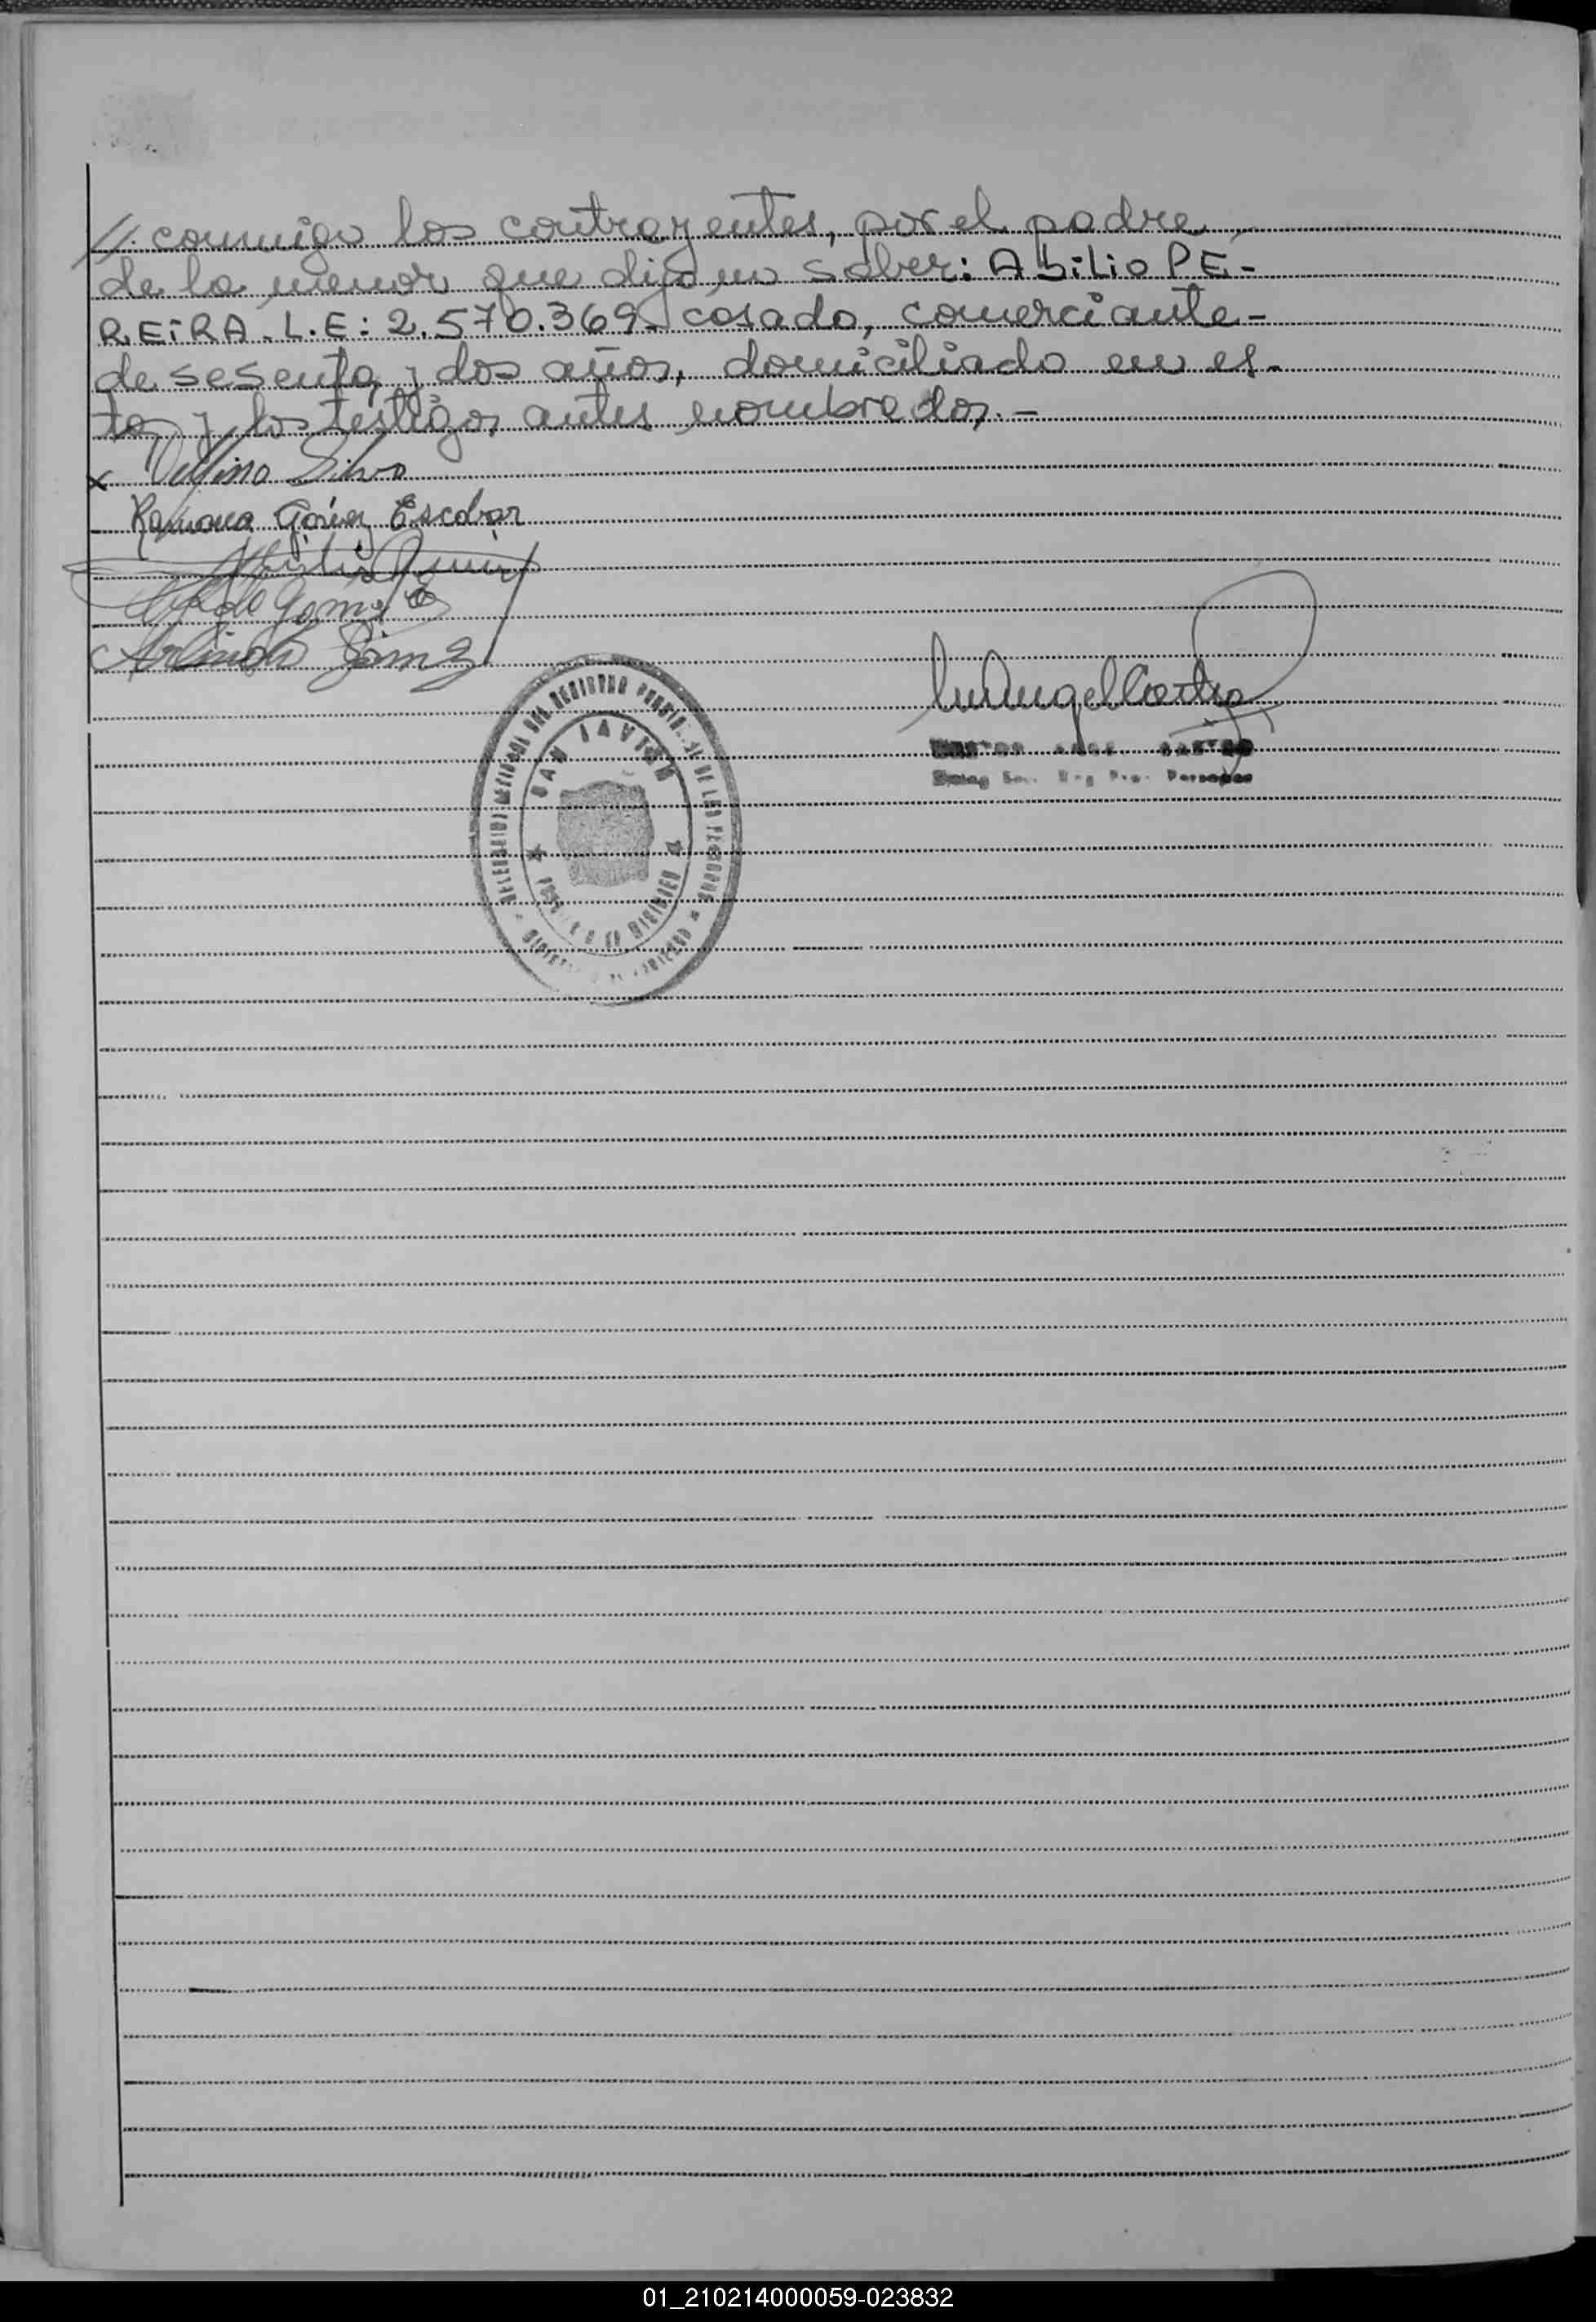 //. conmigo los contrayentes, por el padre
de la menor que dijo no saber: Abilio PE-
REIRA. L.E: 2.570.369- casado, comerciante-
de sesenta y dos años, domiciliado en es-
ta y los testigos antes nombrados.-
x Silva
Ramona Gómez Escobar
Gómez
Arlindo Gómez
DEL REGISTRO DE LAS PERSONAS
SAN JAVIER
MISIONES
01_210214000059-023832